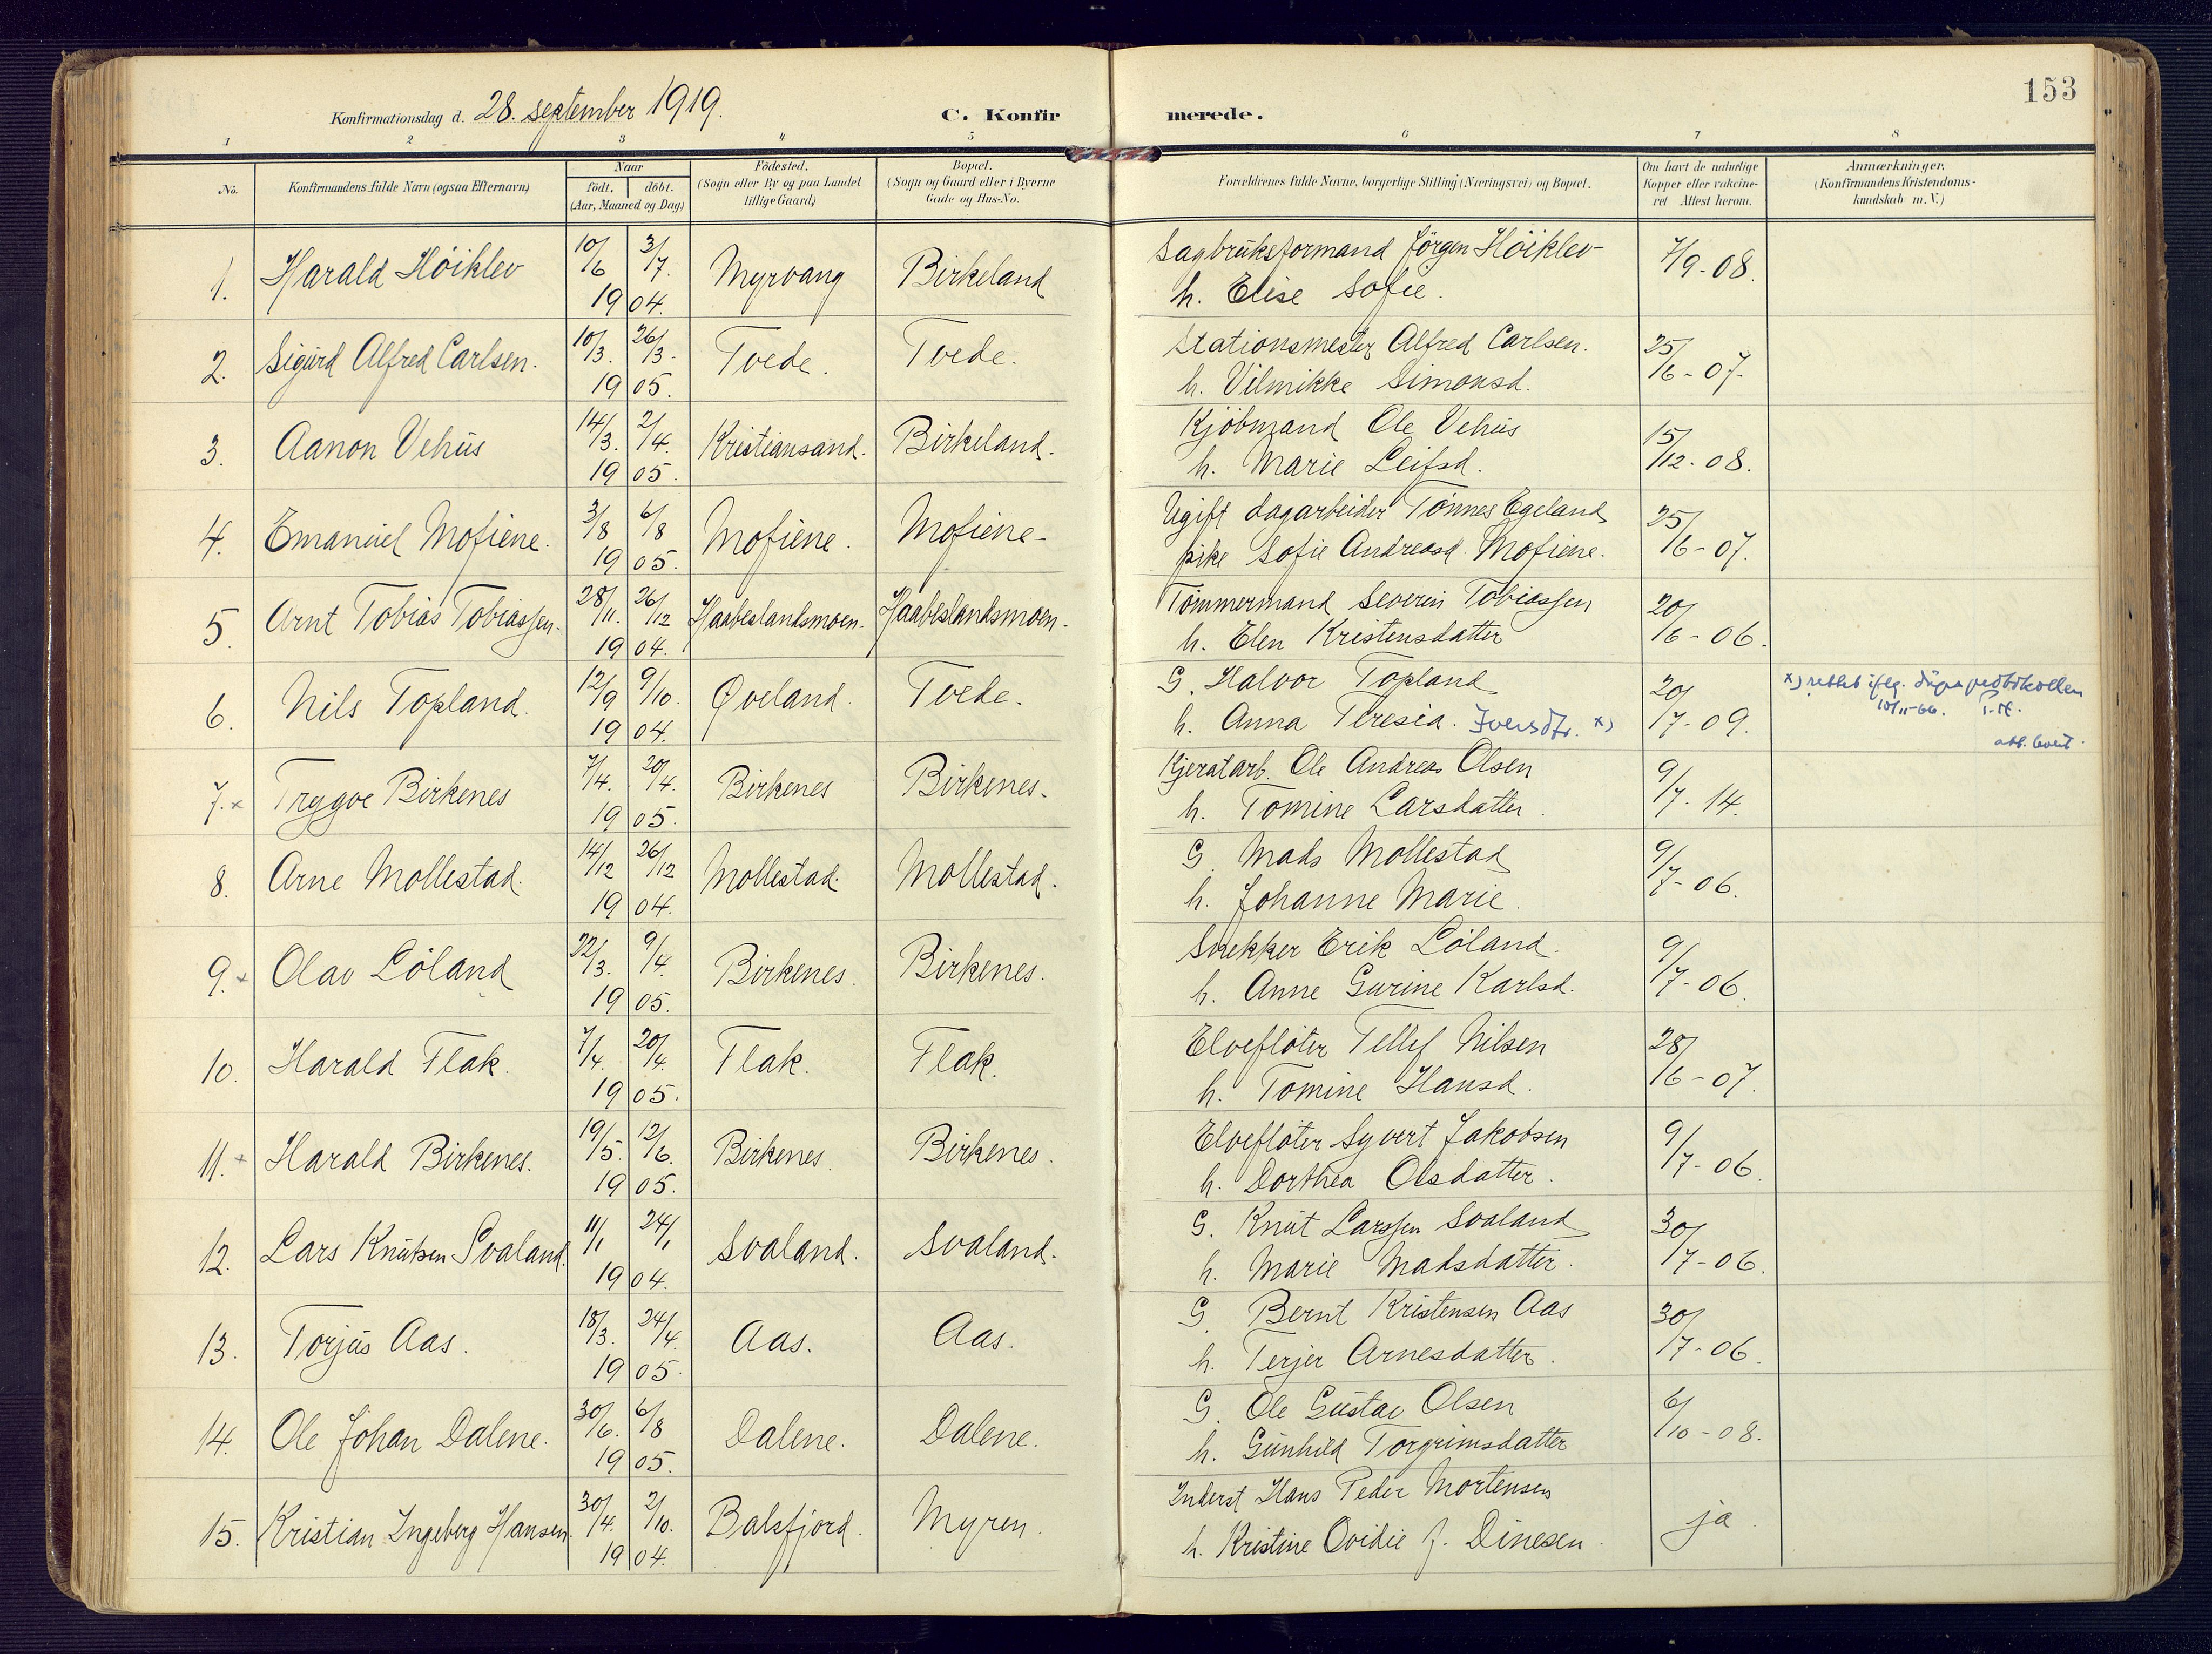 153
Konfirmationsdag d. 28. september 1919. C. Konfirmerede.
1 2 3 4 5 6 7 8
No. Konfirmandens fulde Navn (ogsaa Efternavn) Naar födt. döbt. (Aar, Maaned og Dag) Födested. (Sogn eller By og paa Landet tillige Gaard) Bopæl. (Sogn og Gaard eller i Byerne Gade og Hus-No. Forældrenes fulde Navne, borgerlige Stilling (Næringsvei) og Bopæl. Om havt de naturlige Kopper eller vakcineret Attest herom. Anmærkninger. (Konfirmandens Kristendomskundskab m. V.)
1. Harald Höiklev 10/6 3/7. 1904. Myrvang Birkeland Sagbruksformand Jörgen Höiklev 7/9-08.
h. Elise Sofie.
2. Sigurd Alfred Carlsen. 10/3. 26/3. 1905. Tvede. Tvede. Stationsmester Alfred Carlsen. 25/6-07.
h. Vilmikke Simonsd.
3. Aanon Vehus 14/3. 2/4. 1905. Kristiansand. Birkeland. Kjöbmand Ole Vehus 15/12-08.
h. Marie Leifsd.
4. Emanuel Mofiene. 3/8 6/8 1905. Mofiene. Mofiene- Ugift dagarbeider Tönnes Egeland 25/6-07.
pike Sofie Andreasd. Mofiene.
5. Arnt Tobias Tobiassen. 28/11. 26/12 1904. Haabeslandsmoen. Haabeslandsmoen. Tömmermand Severin Tobiassen 20/6-06.
h. Elen Kristensdatter
6. Nils Topland. 12/9 9/10. 1904. Øveland. Tvede. G. Halvor Topland 20/7-09. x) rettet iflg. dåpsprotokollen
h. Anna Teresia. Iversdtr. x) 10/11-66.
att. levert.
7.x Trygve Birkenes 7/4. 20/4. 1905. Birkenes Birkenes. Kjeratarb. Ole Andreas Olsen 9/7-14.
h. Tomine Larsdatter.
8. Arne Mollestad. 14/12 26/12 1904. Mollestad. Mollestad. G. Mads Mollestad 9/7-06.
h. Johanne Marie.
9.x Olav Löland 22/3. 9/4. 1905. Birkenes. Birkenes. Snekker Erik Löland. 9/7-06.
h. Anne Gurine Karlsd.
10. Harald Flak. 7/4. 20/4. 1905. Flak. Flak. Elveflöter Tellef Nilsen 28/6-07.
h. Tomine Hansd.
11.x Harald Birkenes. 19/5. 12/6. 1905. Birkenes. Birkenes. Elveflöter Syvert Jakobsen 9/7-06.
h. Dorthea Olsdatter.
12. Lars Knutsen Svaland. 11/1 24/1 1904. Svaland. Svaland. G. Knut Larssen Svaland 30/7-06.
h. Marie Madsdatter.
13. Torjus Aas. 18/3. 24/4. 1905. Aas. Aas. G. Bernt Kristensen Aas 30/7-06.
h. Terjer Arnesdatter.
14. Ole Johan Dalene. 30/6. 6/8 1905. Dalene. Dalene. G. Ole Gustav Olsen 6/10-08.
h. Gunhild Torgrimsdatter
15. Kristian Ingeberg Hansen. 30/4. 2/10. 1904. Balsfjord. Myren. Inderst Hans Peder Mortensen ja
h. Kristine Ovidie f. Dinesen.